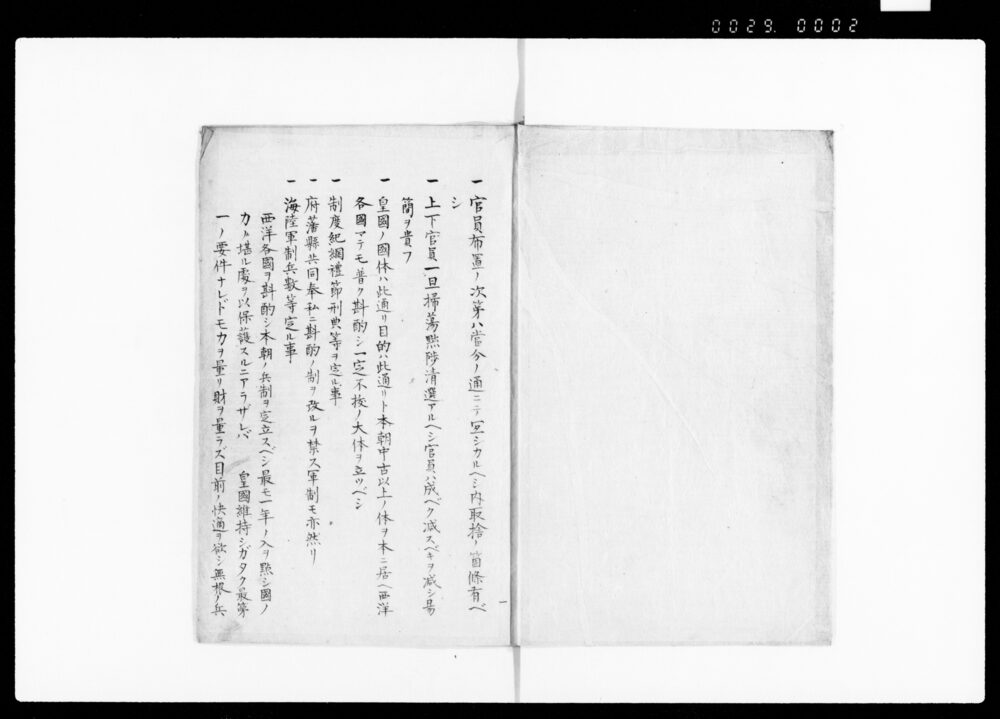 0029. 0002
一 官員布置ノ次第ハ當今ノ通ニテ宜シカルヘシ内取捨ノ箇條有ベ
シ
一 上下官員一旦掃蕩黜陟清選アルヘシ官員ハ成ベク減スベキヲ減シ易
簡ヲ貴フ
一 皇國ノ國体ハ此通リ目的ハ此通リト本朝中古以上ノ体ヲ本ニ居ヘ西洋
各國マテモ普ク斟酌シ一定不拔ノ大体ヲ立ツベシ
一 制度紀綱禮節刑典等ヲ定ル事
一 府藩縣共同奉私ニ斟酌ノ制ヲ改ルヲ禁ス軍制モ亦然リ
一 海陸軍制兵数等定ル事
西洋各國ヲ斟酌シ本朝ノ兵制ヲ定立スベシ最モ一年ノ入ヲ点シ國ノ
力ノ堪ル處ヲ以保護スルニアラザレバ 皇國維持シガタク最第
一ノ要件ナレドモ力ヲ量リ財ヲ量ラズ目前ノ快適ヲ欲シ無根ノ兵
一